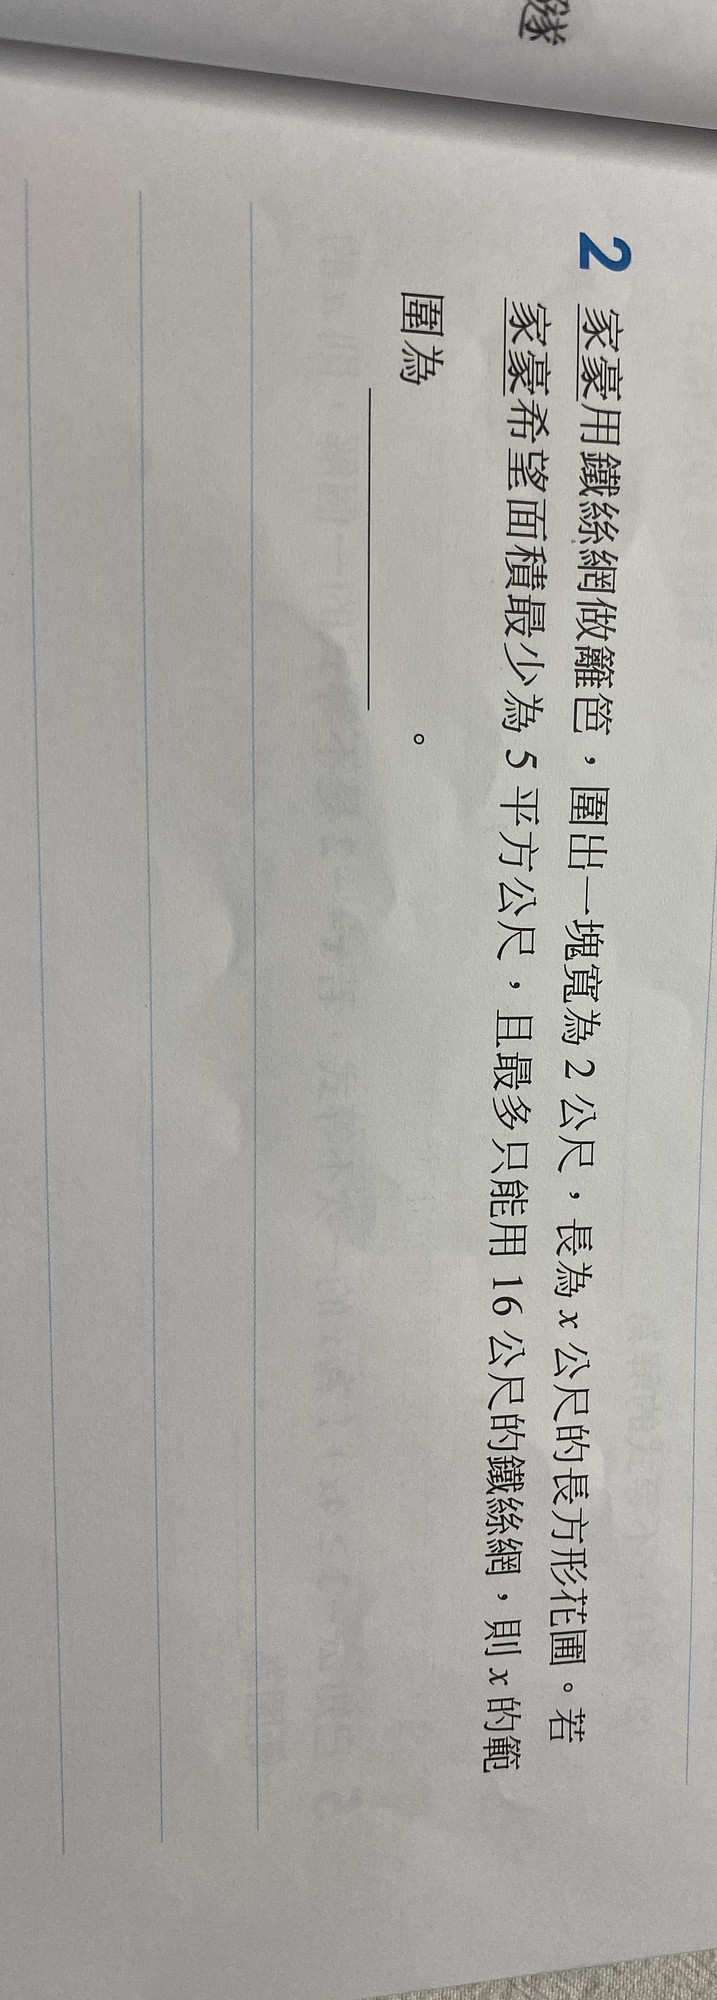 2 家豪用鐵絲網做籬笆，圍出一塊寬為 2 公尺，長為 x 公尺的長方形花圃。若
家豪希望面積最少為 5 平方公尺，且最多只能用 16 公尺的鐵絲網，則 x 的範
圍為＿＿＿＿＿＿。